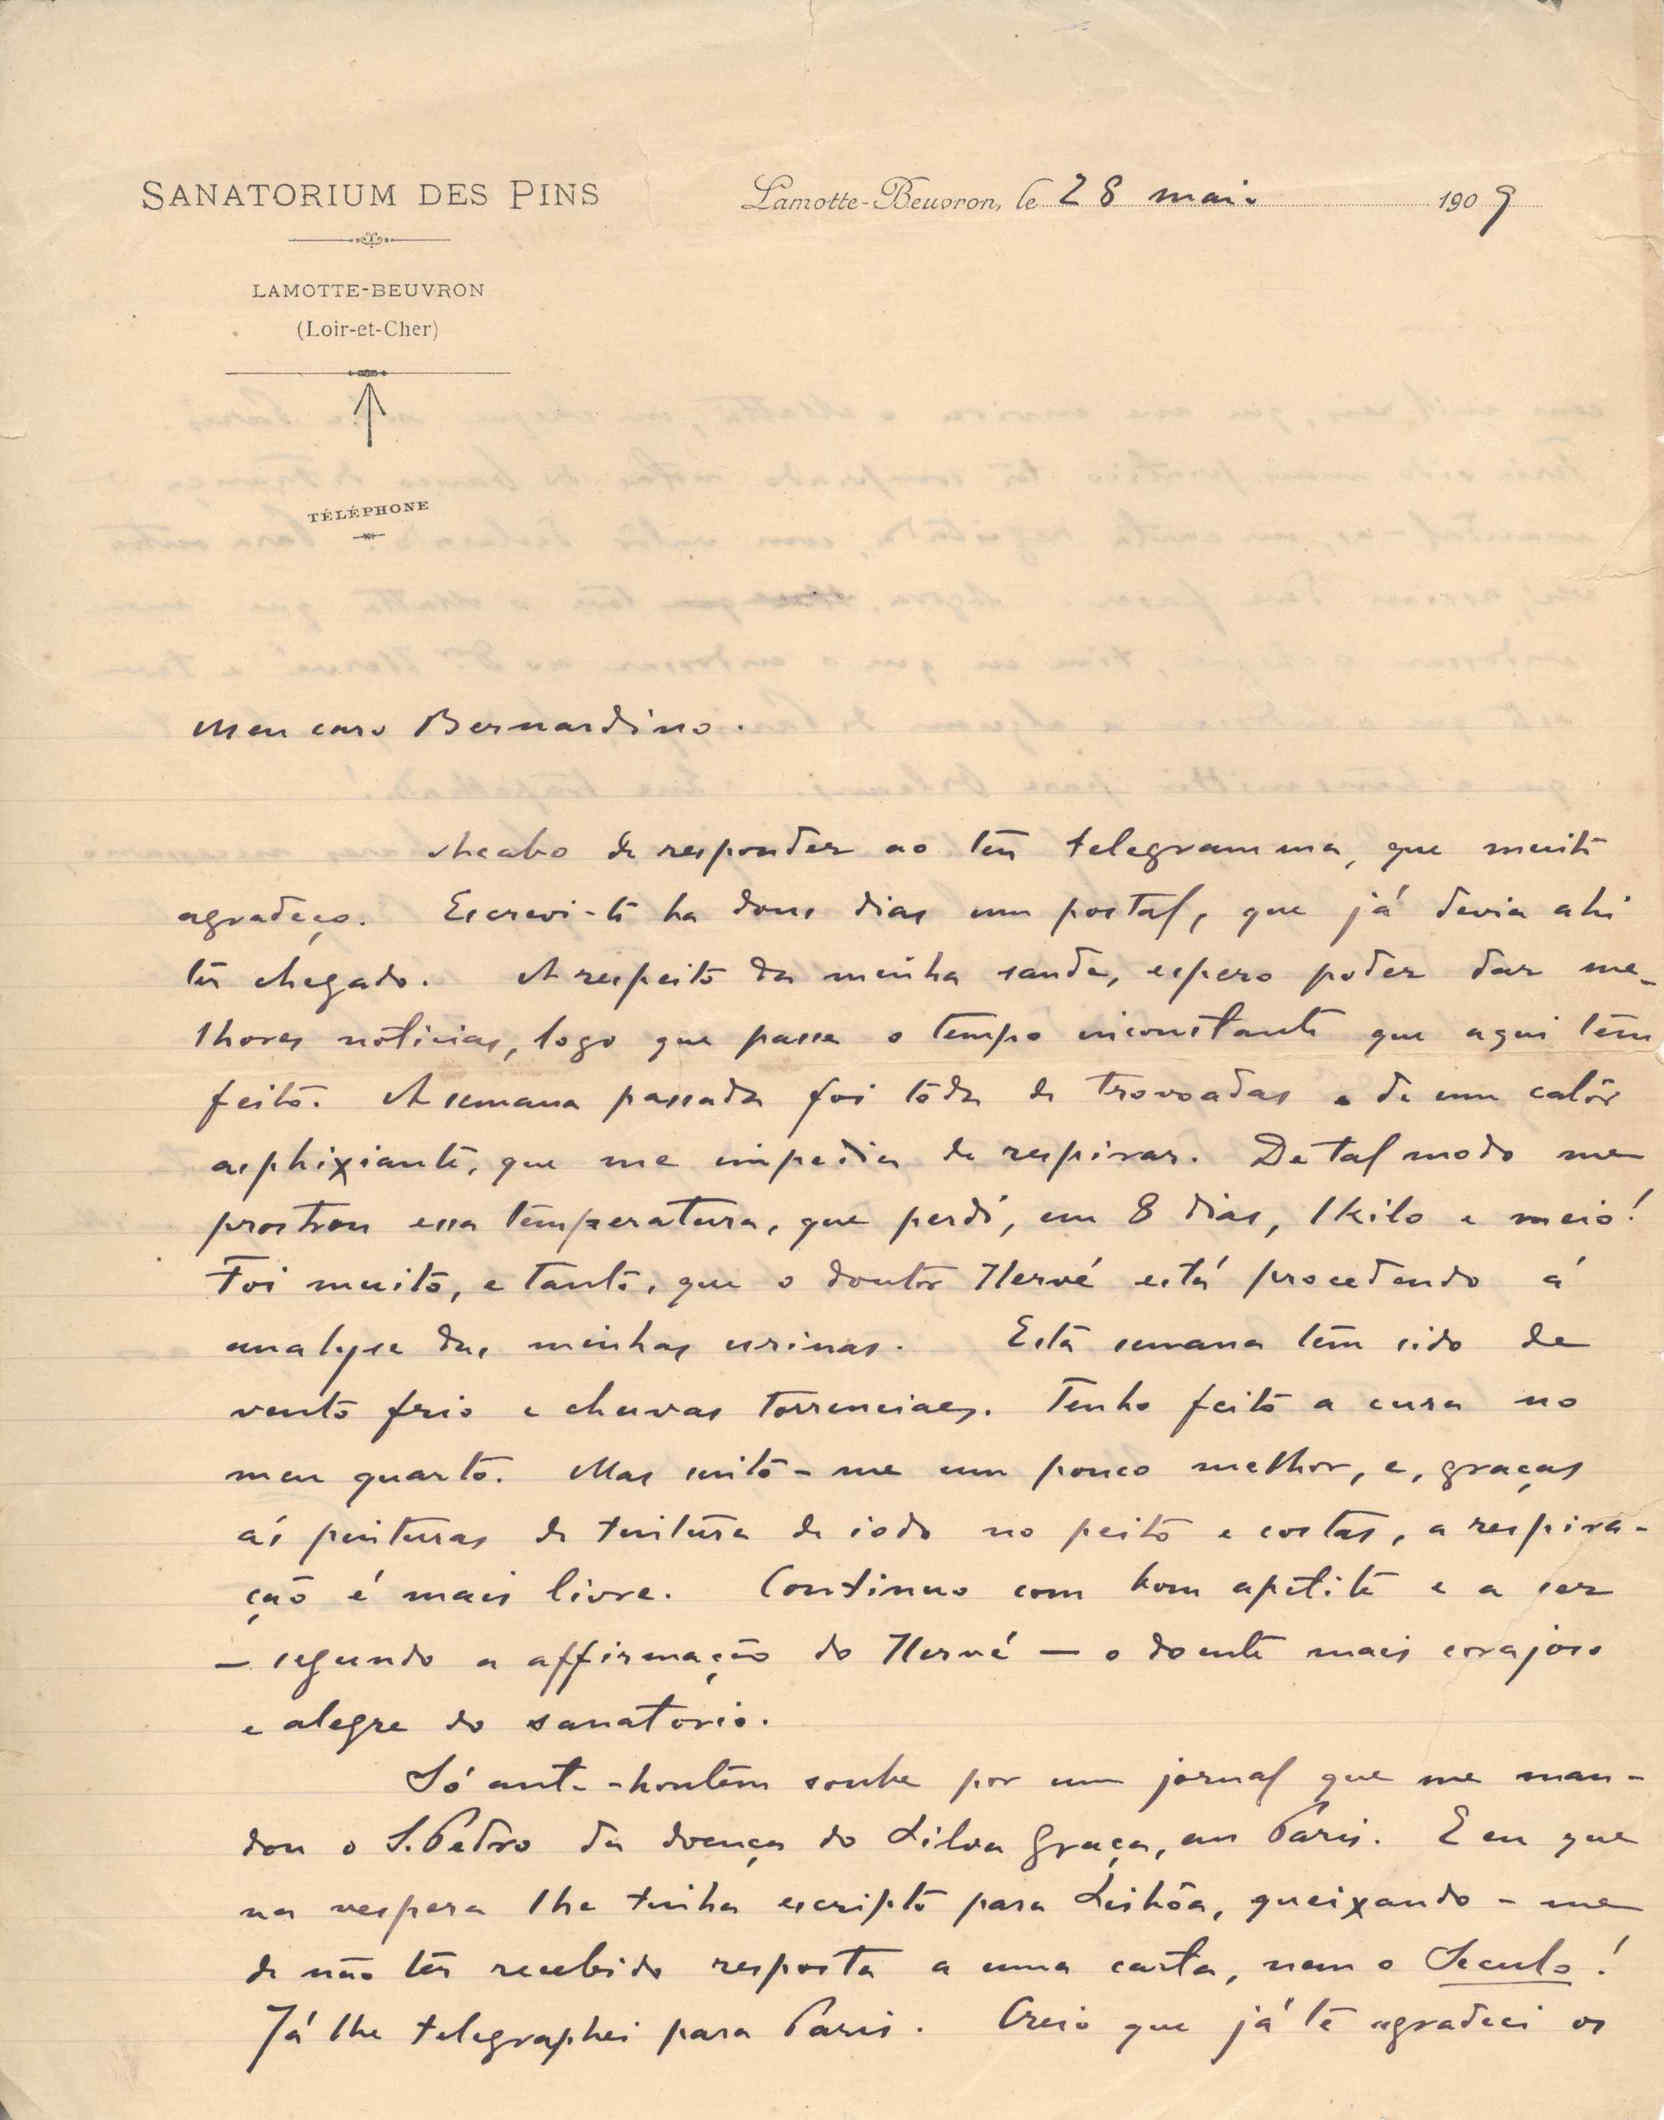 SANATORIUM DES PINS
LAMOTTE-BEUVRON
(Loir-et-Cher)
TÉLÉPHONE
Lamotte-Beuvron, le 28 maio 1909
Meu caro Bernardino.
Acabo de responder ao teu telegramma, que muito
agradeço. Escrevi-te ha dous dias um postal, que já devia ahi
ter chegado. A respeito da minha saude, espero poder dar me-
lhores noticias, logo que passe o tempo inconstante que aqui tem
feito. A semana passada foi tôda de trovoadas e de um calôr
asphixiante, que me impedia de respirar. De tal modo me
prostrou essa temperatura, que perdi, em 8 dias, 1 kilo e meio!
Foi muito, e tanto, que o doutor Hervé está procedendo á
analyse das minhas urinas. Esta semana tem sido de
vento frio e chuvas torrenciaes. Tenho feito a cura no
meu quarto. Mas sinto-me um pouco melhor, e, graças
ás pinturas de tintura de iodo no peito e costas, a respira-
ção é mais livre. Continuo com bom apetite e a ser
— segundo a affirmação do Hervé — o doente mais corajoso
e alegre do sanatorio.
Só ante-hontem soube por um jornal que me man-
dou o S. Pedro da doença do Silva Graça, em Paris. E eu que
na vespera lhe tinha escripto para Lisbôa, queixando-me
de não ter recebido resposta a uma carta, nem o Seculo!
Já lhe telegraphei para Paris. Creio que já te agradeci os